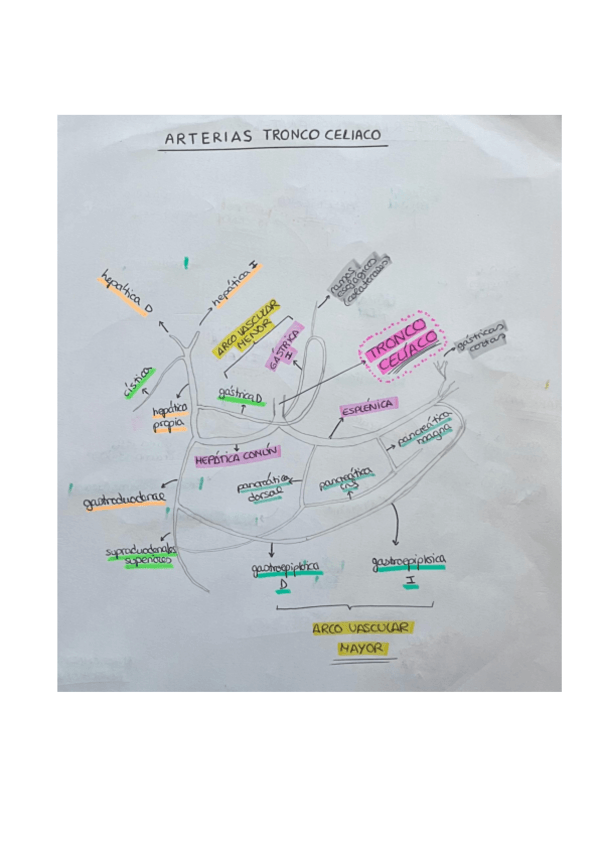 ARTERIAS TRONCO CELIACO
hepática D
hepática I
ARCO VASCULAR
MENOR
GÁSTRICA
ramos
esofágicos
TRONCO
CELÍACO
gástricas
cortas
cística
hepática
propia
gástrica D
ESPLÉNICA
pancreática
magna
HEPÁTICA COMÚN
pancreática
dorsal
pancreática
gastroduodenal
supraduodenales
superiores
gastroepiploica
D
gastroepiploica
I
ARCO VASCULAR
MAYOR